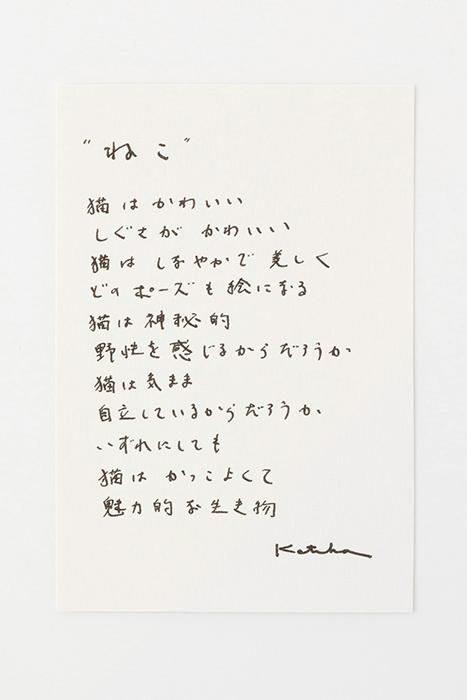 "ねこ"
猫はかわいい
しぐさが かわいい
猫は しなやかで 美しく
どのポーズも絵になる
猫は神秘的
野性を感じるからだろうか
猫は気まま
自立しているからだろうか
いずれにしても
猫は かっこよくて
魅力的な生き物